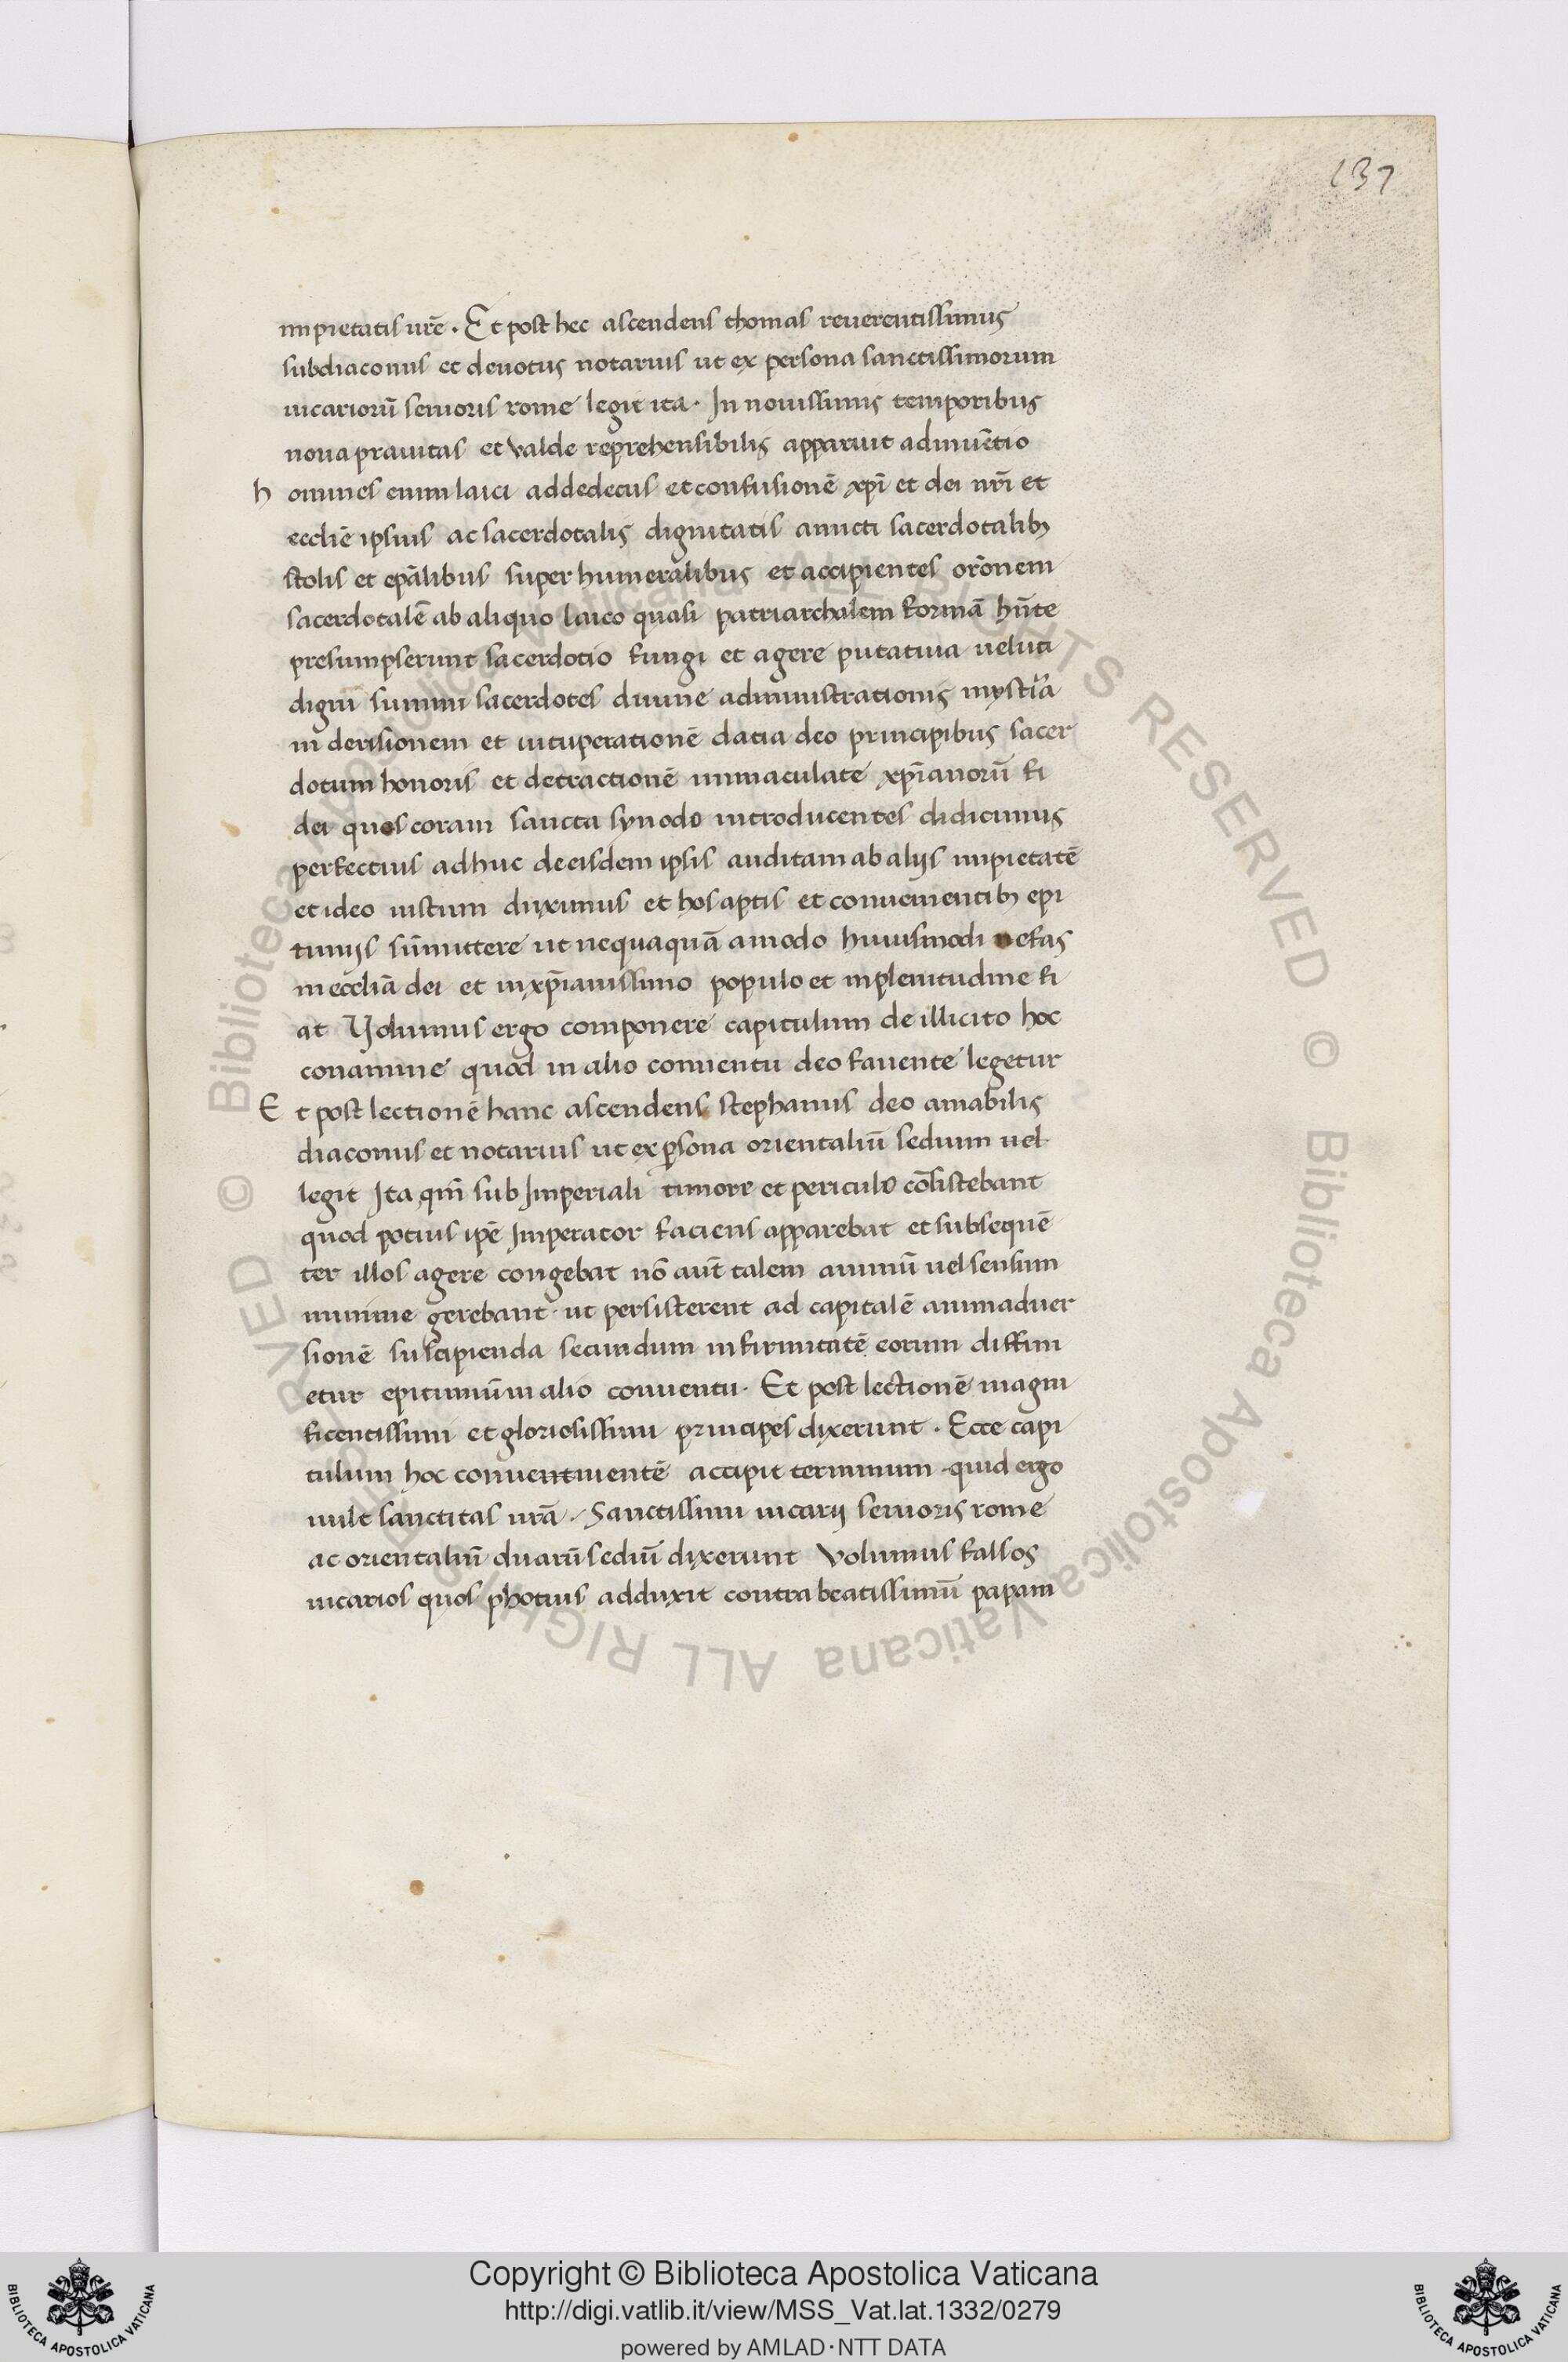 137
impietatis urē . Et post hec ascendens thomas reuerentissimus
subdiaconus et deuotus notarius ut ex persona sanctissimorum
uicariorū senioris rome legit ita . In nouissimis temporibus
noua prauitas et valde reprehensibilis apparuit adinuētio
h omines enim laici ad dedecus et confusionē xpī et dei nrī et
eccliē ipsius ac sacerdotalis dignitatis amicti sacerdotalib;
stolis et epālibus superhumeralibus et accipientes orōnem
sacerdotalē ab aliquo laico quasi patriarchalem formā hn̄te
presumpserunt sacerdotio fungi et agere putatiua ueluti
digni summi sacerdotes diuine administrationis mystīa
in derisionem et uituperationē dati a deo principibus sacer
dotum honoris et detractionē immaculate xpīanorū fi
dei quos coram sancta synodo introducentes didicimus
perfectius adhuc de eisdem ipsis auditam ab alijs impietatē
et ideo iustum duximus et hos aptis et conuenientib; epi
timijs sūmittere ut nequaquā amodo huiusmodi nefas
in eccliā dei et in xpīanissimo populo et in plenitudine fi
at Volumus ergo componere capitulum de illicito hoc
conamine quod in alio conuentu deo fauente legetur
E t post lectionē hanc ascendens stephanus deo amabilis
diaconus et notarius ut ex psona orientaliū sedium uel
legit Ita qm̄ sub Imperiali timore et periculo cōsistebant
quod potius ipē Imperator faciens apparebat et subsequē
ter illos agere congebat nō aūt talem animū uel sensum
minime gerebant . ut persisterent ad capitalē animaduer
sionē suscipienda secundum infirmitatē eorum diffini
etur epitimiū in alio conuentu . Et post lectionē magni
ficentissimi et gloriosissimi principes dixerunt . Ecce capi
tulum hoc conuentuentē accipit terminum . quid ergo
uult sanctitas urā . Sanctissimi uicarij senioris rome
ac orientaliū duarū sediū dixerunt Volumus falsos
uicarios quos photius adduxit contra beatissimū papam
© Biblioteca Apostolica Vaticana ALL RIGHTS RESERVED © Biblioteca Apostolica Vaticana ALL RIGHTS RESERVED
BIBLIOTECA APOSTOLICA VATICANA
Copyright © Biblioteca Apostolica Vaticana
http://digi.vatlib.it/view/MSS_Vat.lat.1332/0279
powered by AMLAD·NTT DATA
BIBLIOTECA APOSTOLICA VATICANA